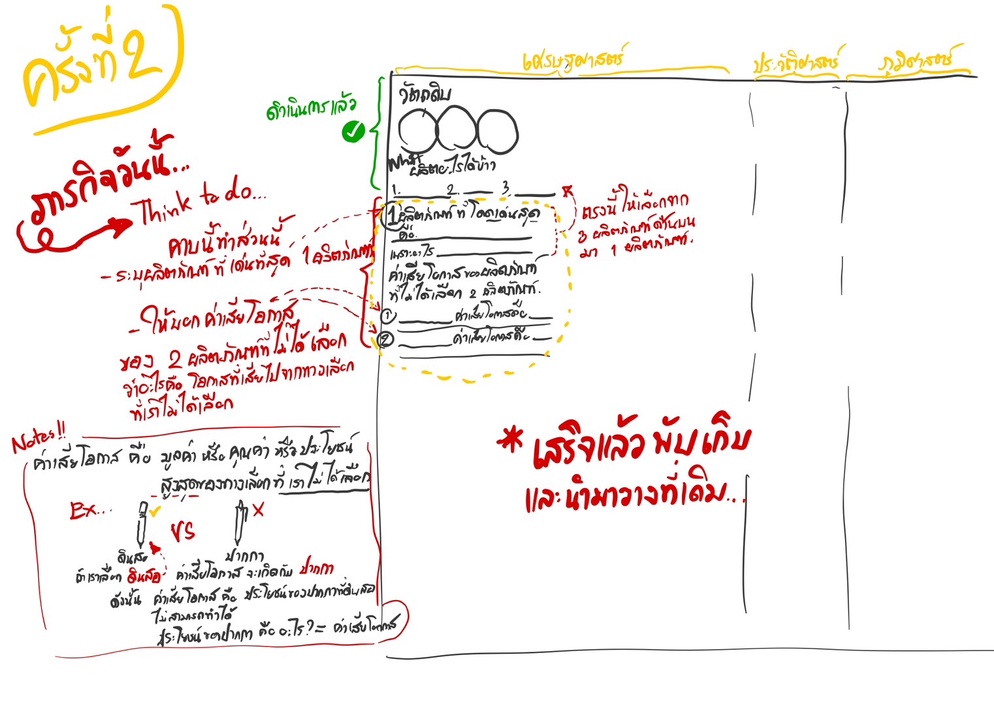 ครั้งที่ 2
เศรษฐศาสตร์
ประวัติศาสตร์
ภูมิศาสตร์
ดำเนินการแล้ว
วัตถุดิบ
ผลิตอะไรได้บ้าง
1. 2. 3.
ภารกิจวันนี้...
Think to do...
คาบนี้ทำส่วนนี้
- ระบุผลิตภัณฑ์ที่เด่นที่สุด 1 ผลิตภัณฑ์
- ให้บอกค่าเสียโอกาส
ของ 2 ผลิตภัณฑ์ที่ไม่ได้เลือก
ว่าอะไรคือ โอกาสที่เสียไปจากทางเลือก
ที่เราไม่ได้เลือก
1 ผลิตภัณฑ์ที่โดดเด่นสุด
คือ
เพราะอะไร
ค่าเสียโอกาสของผลิตภัณฑ์
ที่ไม่ได้เลือก 2 ผลิตภัณฑ์.
① ค่าเสียโอกาสคือ
② ค่าเสียโอกาสคือ
* ตรงนี้ให้เลือกจาก
3 ผลิตภัณฑ์ด้านบน
มา 1 ผลิตภัณฑ์.
* เสร็จแล้ว พับ เก็บ
และนำมาวางที่เดิม...
Notes!!
ค่าเสียโอกาส คือ มูลค่า หรือ คุณค่า หรือ ประโยชน์
สูงสุดของทางเลือกที่ เราไม่ได้เลือก
Ex... VS X
ดินสอ ปากกา
ถ้าเราเลือก ดินสอ ค่าเสียโอกาส จะเกิดกับ ปากกา
ดังนั้น ค่าเสียโอกาส คือ ประโยชน์ของปากกาที่ดินสอ
ไม่สามารถทำได้
ประโยชน์ของปากกา คือ อะไร? = ค่าเสียโอกาส